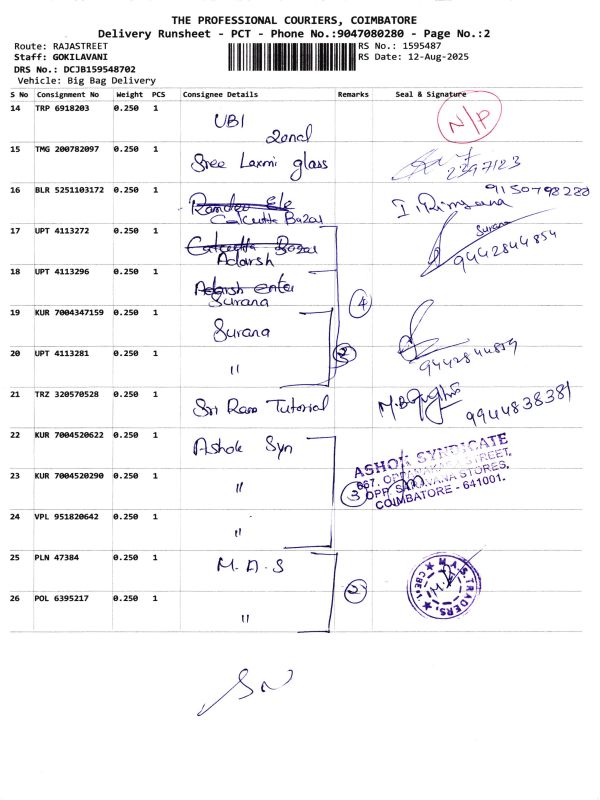 THE PROFESSIONAL COURIERS, COIMBATORE
Delivery Runsheet - PCT - Phone No.:9047080280 - Page No.:2
Route: RAJASTREET
RS No.: 1595487
Staff: GOKILAVANI
RS Date: 12-Aug-2025
DRS No.: DCJB159548702
Vehicle: Big Bag Delivery
S No Consignment No Weight PCS Consignee Details Remarks Seal & Signature
14 TRP 6918203 0.250 1 UBI
Zonal
N/P
15 TMG 200782097 0.250 1 Sree Laxmi glass
2397123
16 BLR 5251103172 0.250 1
Calcutta Bazar
9150798228
17 UPT 4113272 0.250 1 Calcutta Bazar
Adarsh
Surana
9442844854
18 UPT 4113296 0.250 1 Adarsh enter
Surana
4
19 KUR 7004347159 0.250 1 Surana
20 UPT 4113281 0.250 1 "
9442844859
21 TRZ 320570528 0.250 1 Sri Ram Tutorial
9944838381
22 KUR 7004520622 0.250 1 Ashok Syn
ASHOK SYNDICATE
23 KUR 7004520290 0.250 1 "
3
667, OPPANAKARA STREET,
OPP. SARAVANA STORES,
COIMBATORE - 641001.
24 VPL 951820642 0.250 1 "
25 PLN 47384 0.250 1 M.A.S
2
M.A.S. TRADERS, CBE-1.
26 POL 6395217 0.250 1 "